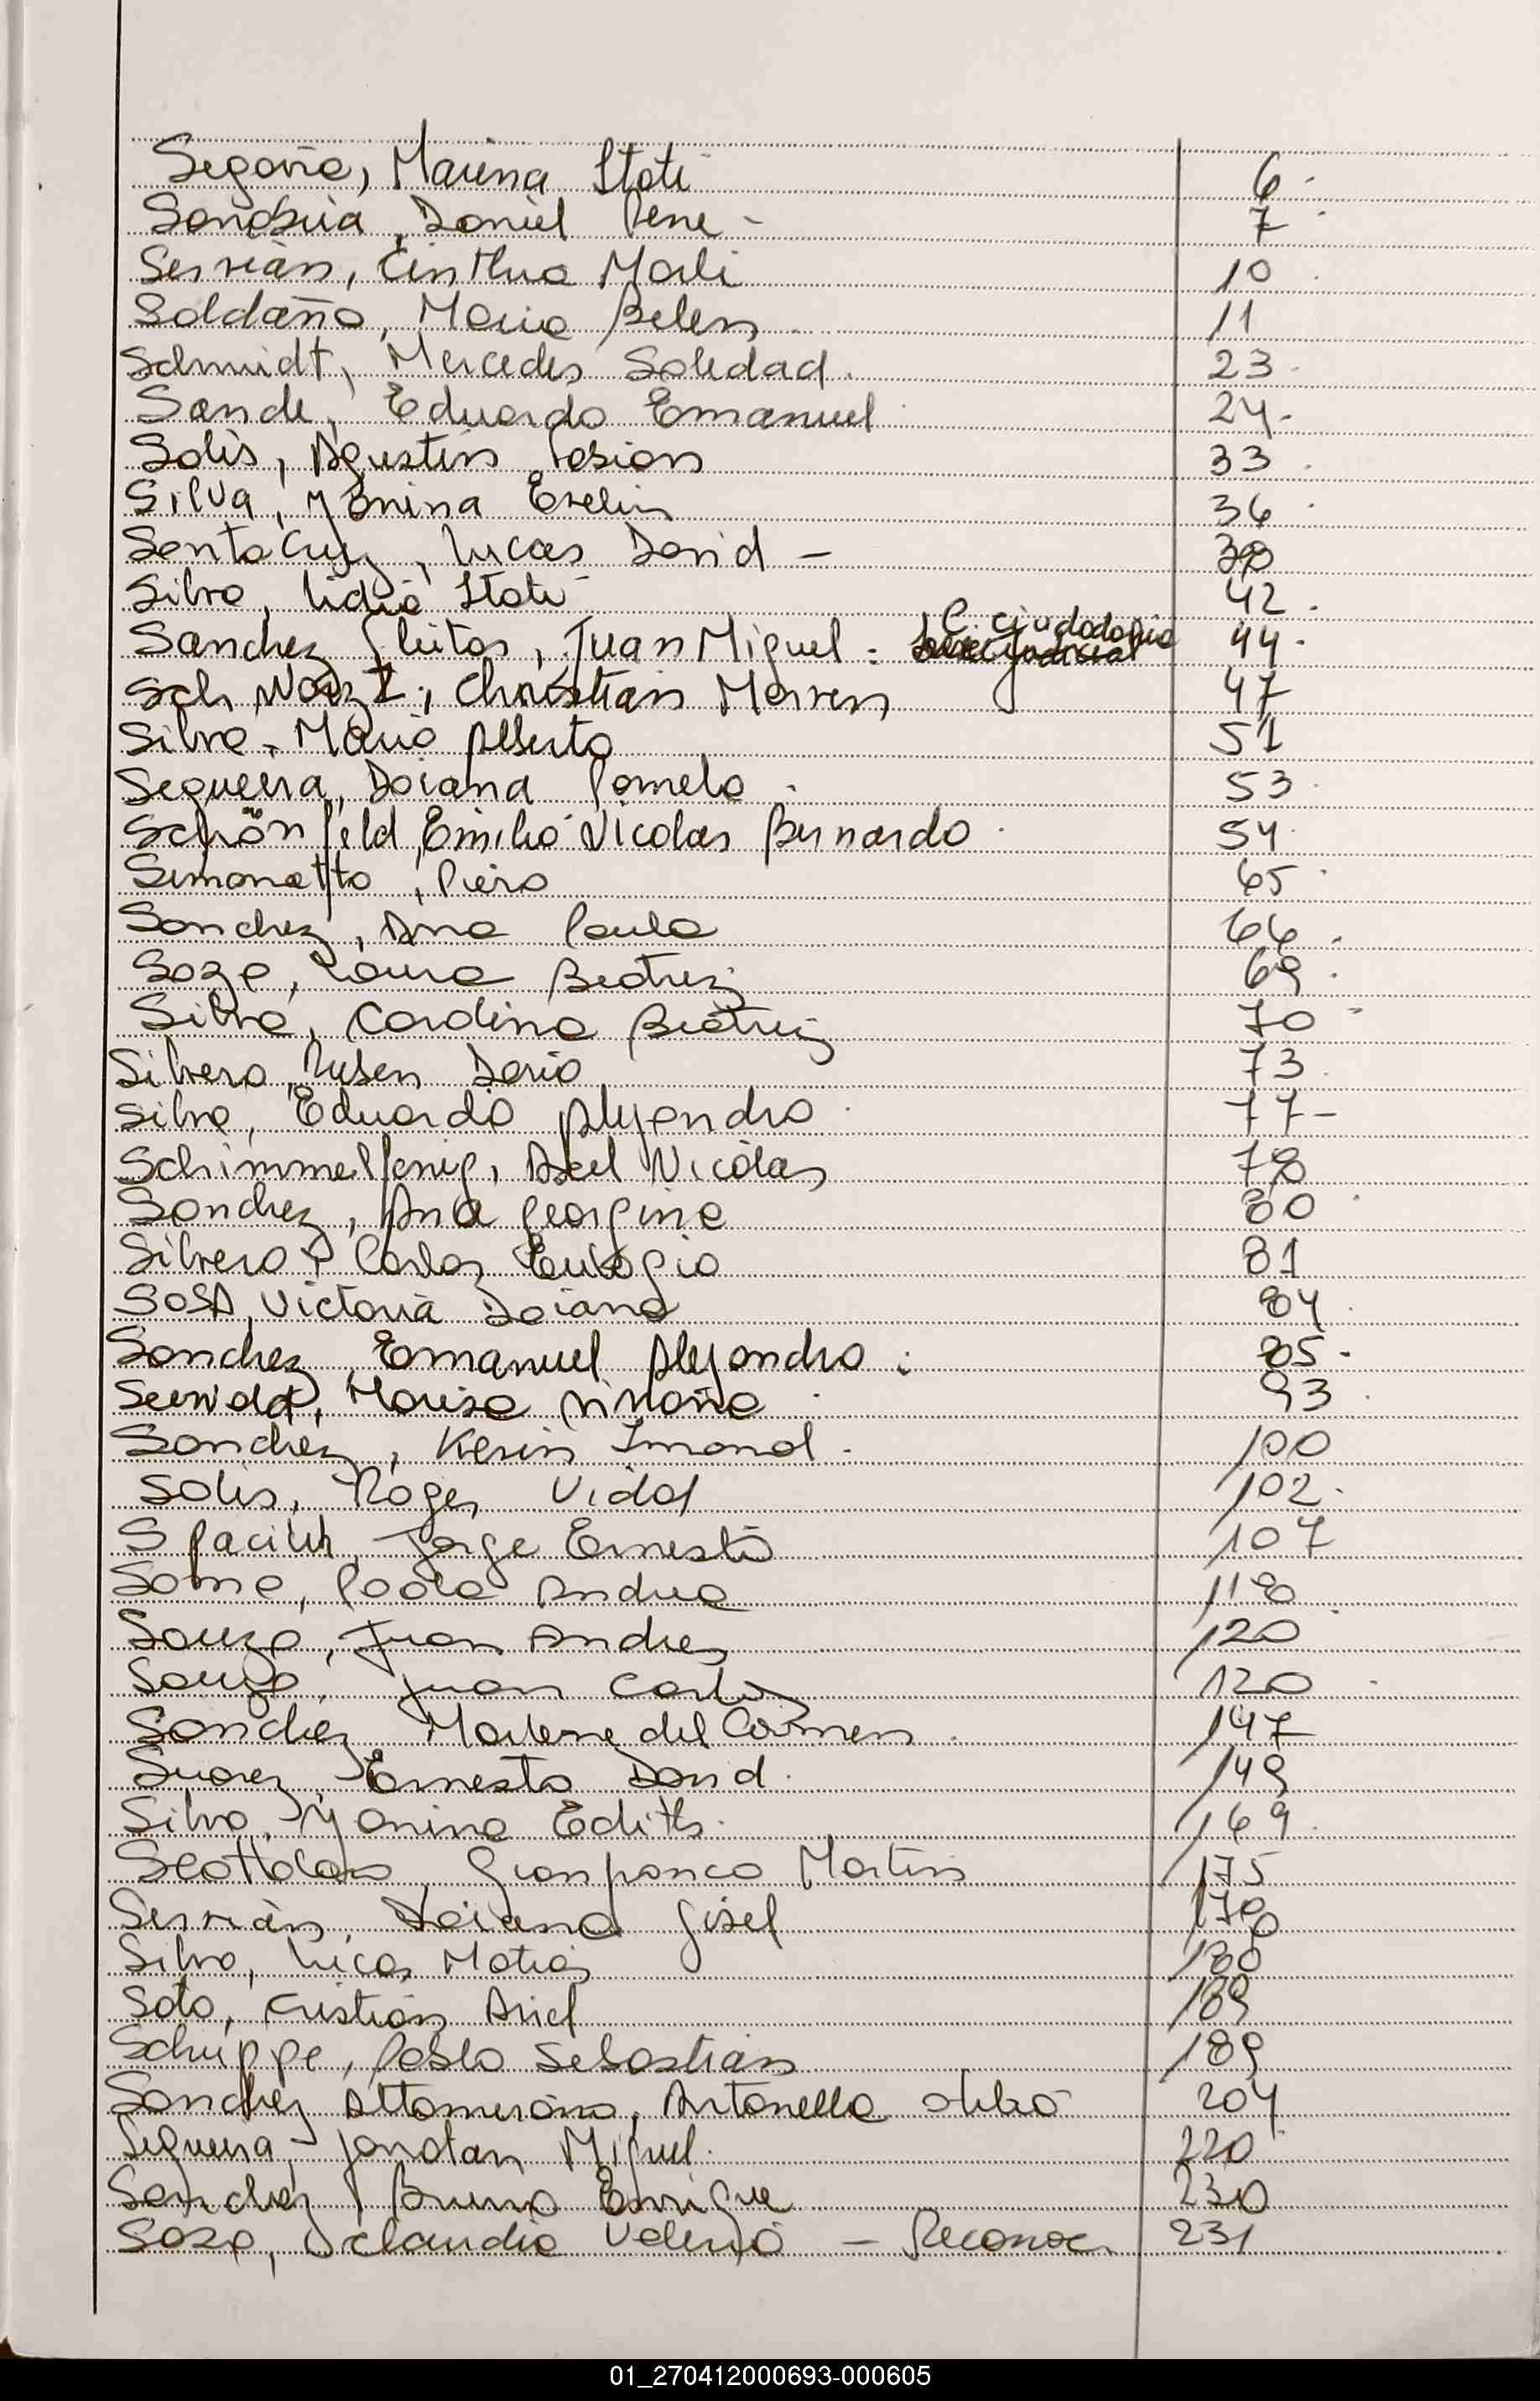 Segovia, Marina Itati 6.
Sanabria, Daniel Rene - 7.
Servián, Cinthia Mali 10.
Soldaño, Maria Belen 11
Schmidt, Mercedes Soledad. 23.
Sande, Eduardo Emanuel 24.
Solis, Agustin Fabian 33.
Silva, Yanina Evelin 36.
Santa Cruz, Lucas David - 38
Silva, Lidia Itati 42.
Sanchez Fleitas, Juan Miguel. C. ciudadania 44.
Sch Warz I., Christian Marven 47
Silva, Mario Alberto 51
Sequeira, Daiana Pamela. 53.
Schönfeld, Emilio Nicolas Bernardo. 54.
Simonetto, Piero 65.
Sanchez, Ana Paula 66.
Soza, Laura Beatriz 69.
Silva, Carolina Beatriz 70-
Silvero, Ruben Dario 73.
Silva, Eduardo Alejandro. 77-
Schimmelfenig, Axel Nicolas 78
Sanchez, Ana Georgina 80.
Silvero, Carlos Eulogio 81
SOSA, Victoria Daiana 84.
Sanchez, Emanuel Alejandro. 85.
Seewald, Marisa 93.
Sanchez, Kevin Imanol. 100
Solis, Roger Vidal 102.
Jorge Ernesto 107
Soma, Paola Andrea 118
Souza, Juan Andres 120.
Souza, Juan Carlos 120.
Sanchez, Marlene del Carmen. 147
Suarez, Ernesto David. 149
Silva, Yanina Edith. 169.
Scottolaro, Gianfranco Martin 175
Servián, Daiana Gisel 178
Silva, Lucas Matias 180
Soto, Cristian Ariel 189
Schuppe, Pablo Sebastian 189
Sanchez Altamirano, Antonella 204
Sequeira, Jonatan Miguel. 220
Sanchez, Bruno Enrique 230
Soza, Claudia Valeria - Reconoc. 231
01_270412000693-000605